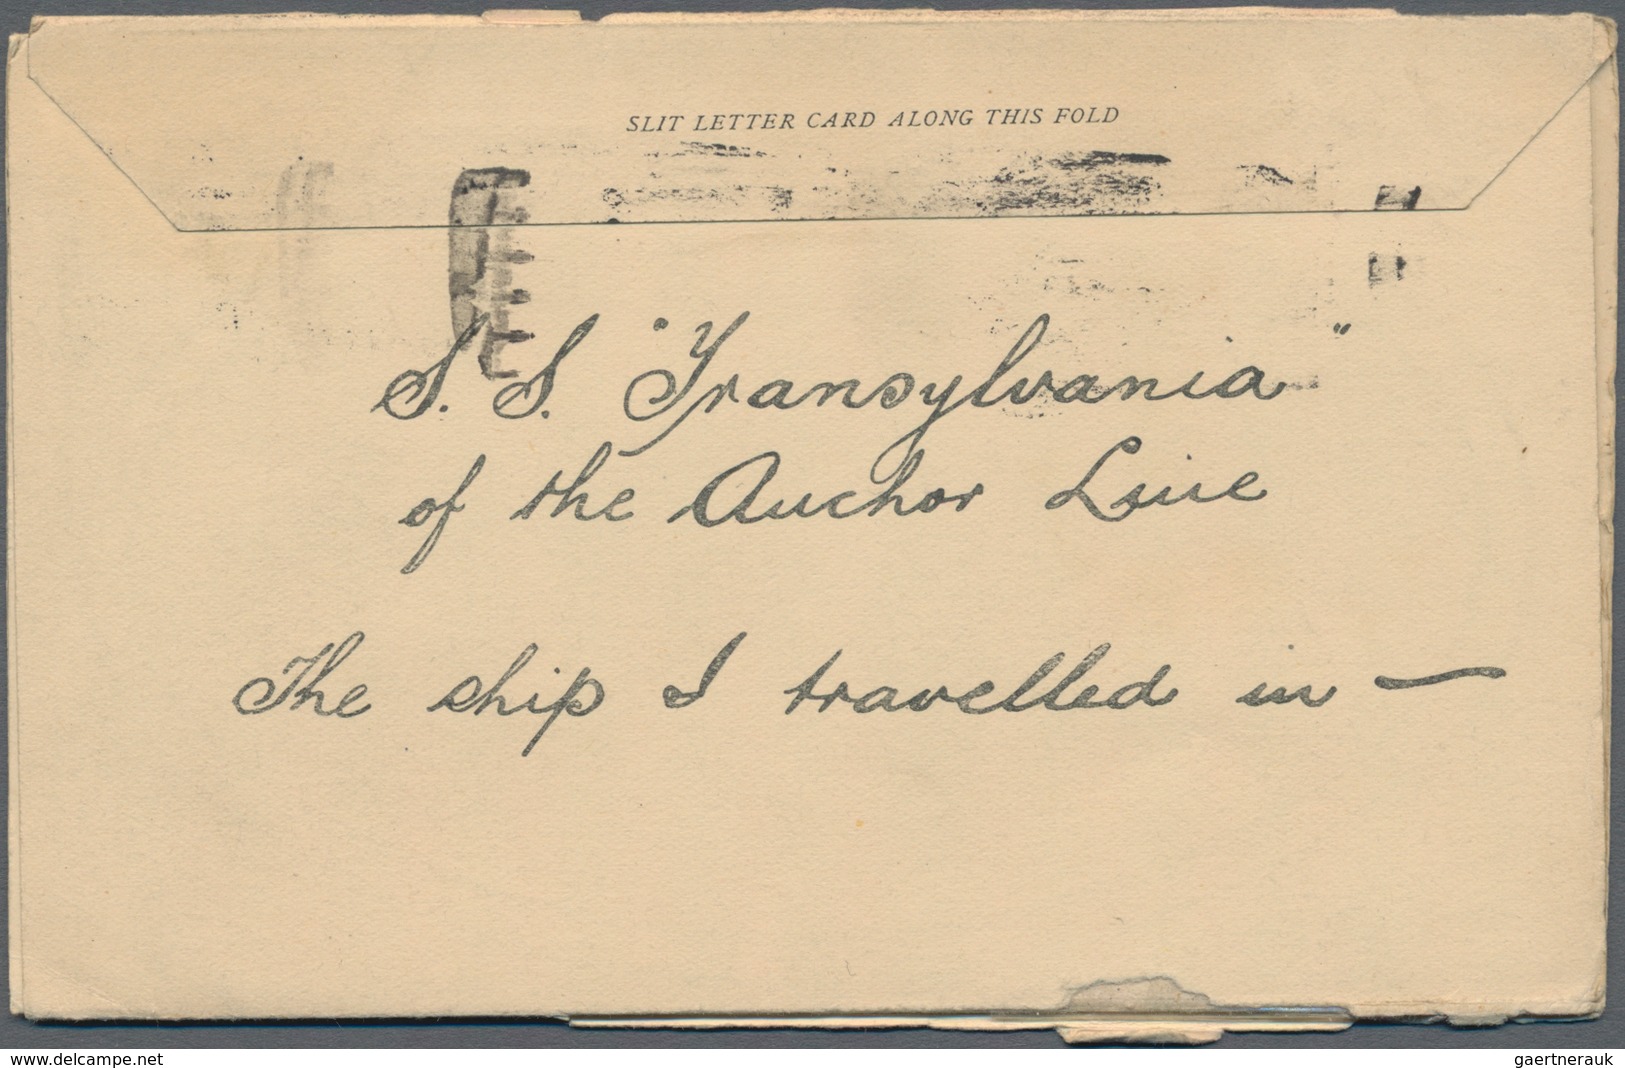 SLIT LETTER CARD ALONG THIS FOLD
S. S. "Transylvania"
of the Anchor Line
The ship I travelled in —
www.delcampe.net
gaertnerauk